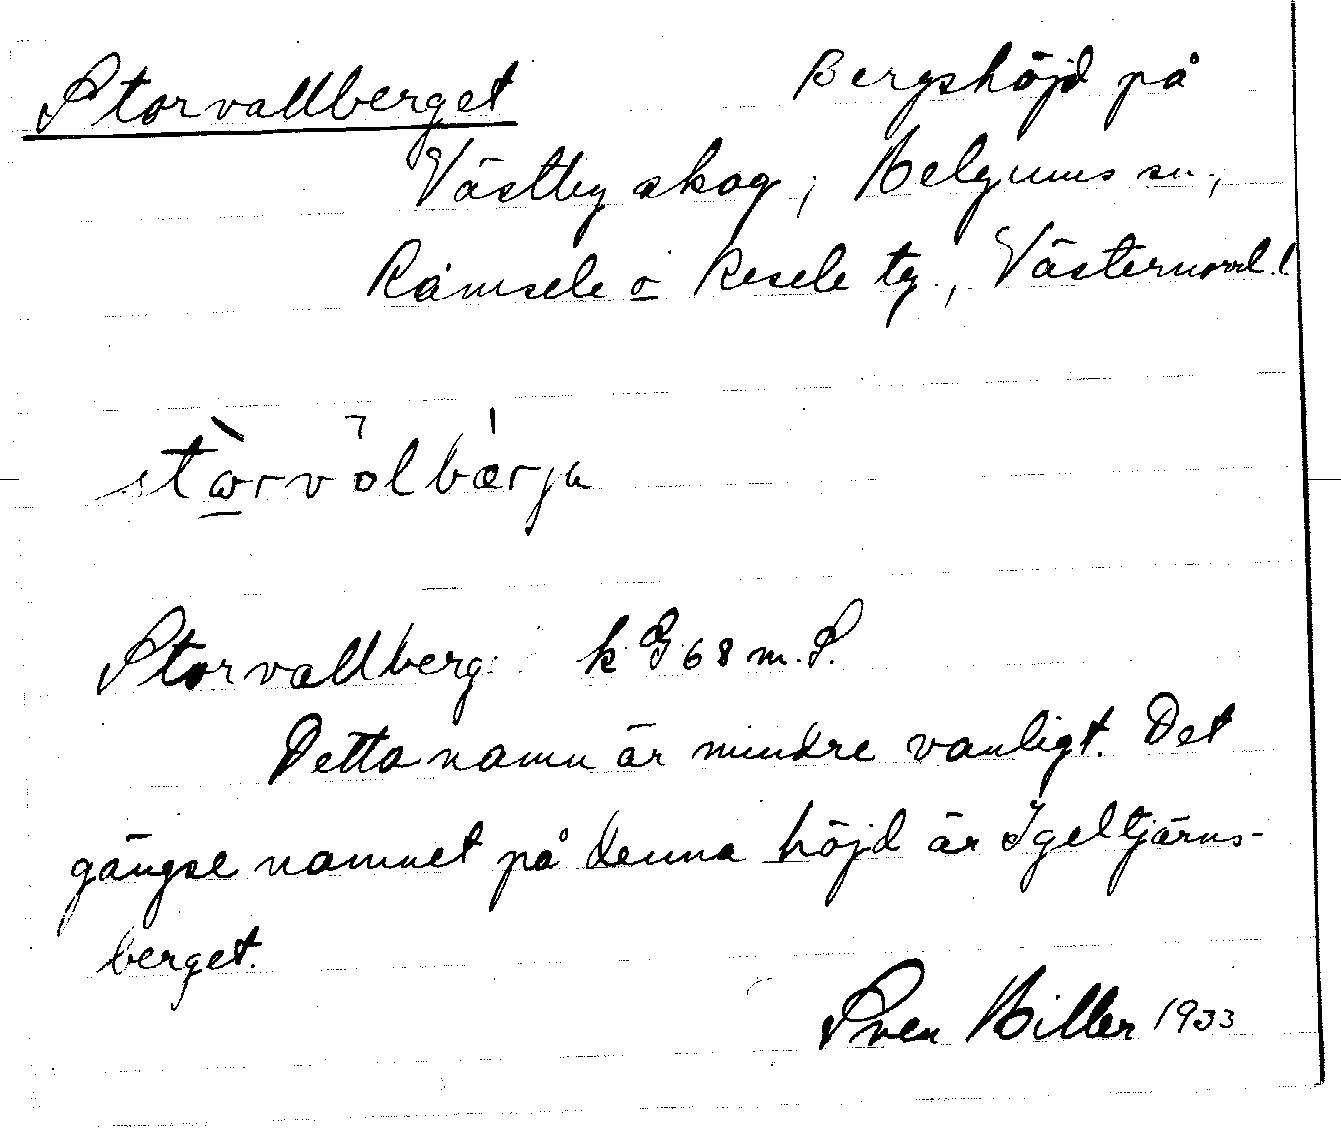 Storvallberget Bergshöjd på
Västby skog, Helgums sn.,
Ramsele o Resele tg., Västernorrl. l
stærvölbærja
Storvallberg k G 68 m. S.
Detta namn är mindre vanligt. Det
gängse namnet på denna höjd är Igeltjärns-
berget.
Sven Hiller 1933